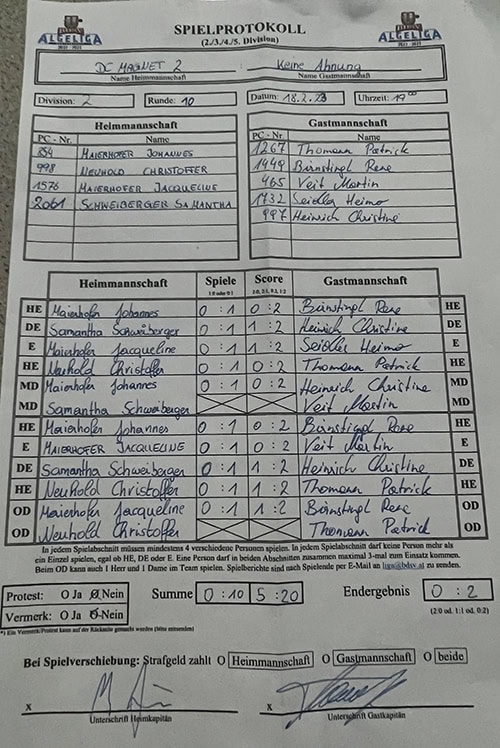 ALGELIGA SPIELPROTOKOLL ALGELIGA
(2./3./4./5. Division)
DC MAGNET 2 : Keine Ahnung
Name Heimmannschaft Name Gastmannschaft
Division: 2 Runde: 10 Datum: 18.2.23 Uhrzeit: 19⁰⁰
Heimmannschaft Gastmannschaft
PC - Nr. Name PC - Nr. Name
854 MAIERHOFER JOHANNES 1267 Thomann Patrick
998 NEUHOLD CHRISTOFFER 1449 Bärnstingl Rene
1576 MAIERHOFER JACQUELINE 465 Veit Martin
2061 SCHWEIBERGER SAMANTHA 1732 Seidler Heimo
997 Heinrich Christine
Heimmannschaft Spiele Score Gastmannschaft
1:0 oder 0:1 2:0, 2:1, 0:2, 1:2
HE Maierhofer Johannes 0 : 1 0 : 2 Bärnstingl Rene HE
DE Samantha Schweiberger 0 : 1 1 : 2 Heinrich Christine DE
E Maierhofer Jacqueline 0 : 1 1 : 2 Seidler Heimo E
HE Neuhold Christoffer 0 : 1 0 : 2 Thomann Patrick HE
MD Maierhofer Johannes 0 : 1 0 : 2 Heinrich Christine MD
MD Samantha Schweiberger Veit Martin MD
HE Maierhofer Johannes 0 : 1 0 : 2 Bärnstingl Rene HE
E MAIERHOFER JACQUELINE 0 : 1 0 : 2 Veit Martin E
DE Samantha Schweiberger 0 : 1 1 : 2 Heinrich Christine DE
HE Neuhold Christoffer 0 : 1 1 : 2 Thomann Patrick HE
OD Maierhofer Jacqueline 0 : 1 1 : 2 Bärnstingl Rene OD
OD Neuhold Christoffer Thomann Patrick OD
In jedem Spielabschnitt müssen mindestens 4 verschiedene Personen spielen. In jedem Spielabschnitt darf keine Person mehr als
ein Einzel spielen, egal ob HE, DE oder E. Eine Person darf in beiden Abschnitten zusammen maximal 3-mal zum Einsatz kommen.
Beim OD kann auch 1 Herr und 1 Dame im Team spielen. Spielberichte sind nach Spielende per E-Mail an liga@bdsv.at zu senden.
Protest: O Ja O Nein Summe 0 : 10 5 : 20 Endergebnis 0 : 2
Vermerk: O Ja O Nein (2:0 od. 1:1 od. 0:2)
*) Ein Vermerk/Protest kann auf der Rückseite gemacht werden (bitte ausmalen)
Bei Spielverschiebung: Strafgeld zahlt O Heimmannschaft O Gastmannschaft O beide
x x
Unterschrift Heimkapitän Unterschrift Gastkapitän